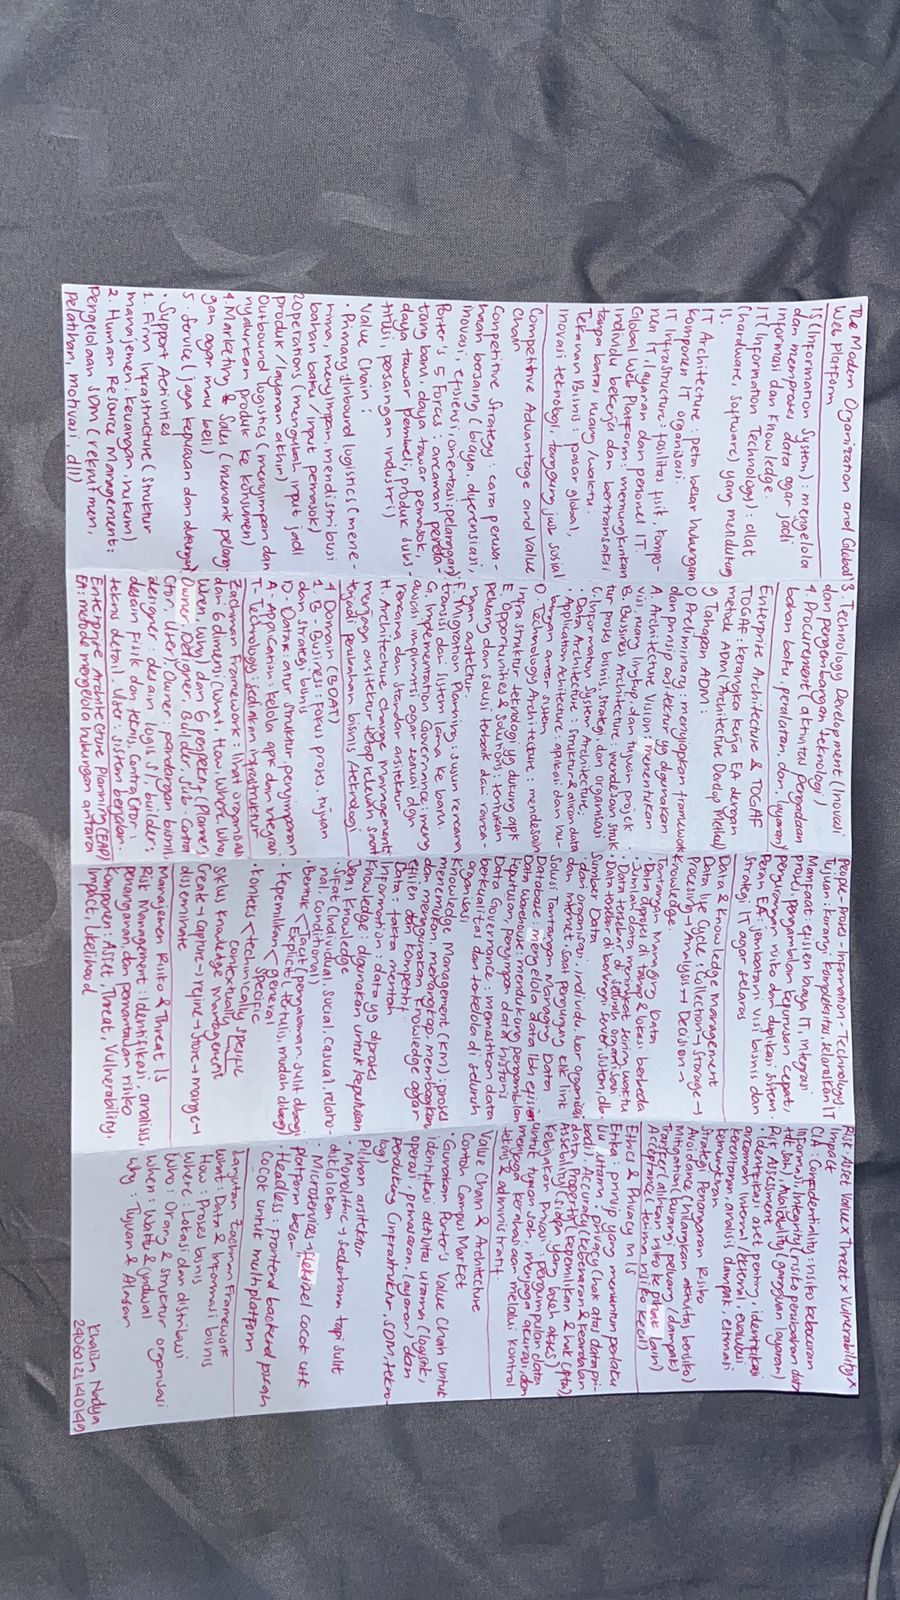 The Modern Organization and Global
Web Platform
IS (Information System) : mengelola
dan memproses data agar jadi
informasi dan knowledge.
IT (Information Technology) : alat
(hardware, software) yang mendukung
IS.
IT Architecture : peta besar hubungan
komponen IT organisasi.
IT Infrastructure : fasilitas fisik, kompo-
nen IT, layanan dan personel IT.
Global Web Platform : memungkinkan
Individu bekerja dan bertransaksi
tanpa batas ruang /waktu.
Tekanan Bisnis : pasar global,
Inovasi teknologi, tanggung jwb sosial
Competitive Advantage and Value
Chain
Competitive Strategy : cara perusa-
haan bersaing (biaya, diferensiasi,
inovasi, efisiensi, orientasi pelanggan).
Porter's 5 Forces : ancaman penda-
tang baru, daya tawar pemasok,
daya tawar pembeli, produk subs-
titusi, persaingan industri)
Value Chain :
• Primary : 1Inbound logistics (mene-
rima, menyimpan, mendistribusi
bahan baku / input pemasok)
2Operations (mengubah input jadi
produk / layanan akhir)
Outbound logistics (menyimpan dan
nyalurkan produk ke konsumen)
4. Marketing & Sales (menarik pelang-
gan agar mau beli)
5. Service (jaga kepuasan dan dukungan)
• Support Activities
1. Firm Infrastructure (struktur
manajemen, keuangan, hukum)
2. Human Resource Management :
Pengelolaan SDM (rekrutmen,
pelatihan, motivasi, dll)
3. Technology Development (Inovasi
dan pengembangan teknologi)
4. Procurement (aktivitas pengadaan
bahan baku, peralatan, dan layanan)
Enterprise Architecture & TOGAF
TOGAF : kerangka kerja EA dengan
metode ADM (Architecture Develop Method)
9 Tahapan ADM :
0 Preliminary : menyiapkan framework
dan prinsip arsitektur yg digunakan
A. Architecture Vision : menentukan
visi, ruang lingkup, dan tujuan projek
B. Bussiness Architecture : mendesain struk-
tur proses bisnis, strategi, dan organisasi
C. Information System Architecture :
• Data Architecture : struktur & aliran data
• Application Achitecture : aplikasi dan hu-
bungan antar sistem
D. Technology Architecture : mendesain
Infra struktur teknologi yg dukung apk
E. Opportunities & Solutions : tentukan
peluang dan solusi terbaik dari ranca-
ngan arsitektur.
F. Migration Planning : susun rencana
transisi dari sistem lama ke baru.
G. Implementation Governance : meng
awasi implmntsi agar sesuai dgn
rencana dan standar arsitektur
H. Architecture Change Management
menjaga arsitektur tetap relevan saat
terjadi perubahan bisnis /teknologi
4 Domain (BDAT)
1. B - Business : fokus proses, tujuan
dan strategi bisnis
D - Data : atur struktur, penyimpanan
A - Application : kelola apk dan integrasi
T - Technology : sediakan infrastruktur
Zachman Framework : lihat organisasi
dari 6 dimensi (What, How, Where, Who,
When, Why) dan 6 perspektif (Planner,
Owner, Designer, Builder, Sub-Contra
ctor, User). Owner : pandangan bisnis,
designer : desain logis SI, builder :
desain fisik dan teknis, Contractor :
teknis detail, User : sistem berjalan.
Enterprise Architecture Planning (EAP)
EA : metode mengelola hubungan antara
People - Proses - Information - Technology.
Tujuan : kurangi kompleksitas, selaraskan IT
Manfaat : efisien biaya IT, integrasi
proses, pengambilan keputusan cepat,
pengurangan risiko dan duplikasi sistem.
Peran EA : jembatani visi bisnis dan
strategi IT agar selaras
Data & Knowledge Management
Data life Cycle : Collection → Storage →
Procesing → Analysis → Decision →
Knowledge.
Tantangan Managing Data
• Data diproses di tahap & lokasi berbeda
• Jumlah data meningkat seiring waktu
• Data tersebar di seluruh organisasi
• Data tersebar di berbagai server, sistem, db.
Sumber Data
• dari organisasi, individu, luar organisasi
dan internet. saat pengunjung klik link
Solusi Tantangan Managing Data
Database : mengelola data lbh efisien
Data Warehouse : mendukung pengambilan
keputusan, penyimpan data historis
Data Governance : memastikan data
berkualitas dan terkelola di seluruh
organisasi
Knowledge Management (KM) : proses
menemukan, menangkap, membagikan
dan menggunakan knowledge agar
efisien dan kompetitif
Data : fakta mentah
Information : data yg diproses
Knowledge : digunakan untuk keputusan
Jenis Knowledge
• Sifat (Individual, Social, Casual, relatio-
nal, conditional)
• Bentuk < Tacit (pengalaman, sulit dibagi)
Explicit (tertulis, mudah dibagi)
• Kepemilikan < general
specific
• Konteks < techinically spesific
contextually spesific
Siklus Knowledge Management
Create → capture → refine → store → mange →
disseminate
Manajemen Risiko & Threat IS
Risk Management : Identifikasi, analisis,
penanganan, dan pemantauan risiko
Komponen : Asset, Threat, Vulnerability,
Impact, Likelihood
Risk : Asset Value × Threat × Vulnerability ×
Impact
CIA : Confidentiality : risiko kebocoran
informasi, Integrity (risiko perubahan data
tdk sah), Availability (gangguan layanan)
Risk Assessment
• Identifikasi aset penting, identifikasi
ancaman internal /eksternal, evaluasi
kerentanan, analisis dampak, estimasi
kemungkinan
Strategi Penanganan Risiko
Avoidance (hilangkan aktivitas berisiko)
Mitigation (kurangi peluang / dampak)
Transfer (alihkan risiko ke pihak lain)
Acceptance (terima risiko kecil)
Ethics & Privacy in IS
Etika : prinsip yang menuntun perilaku
Isu utama : privacy (hak atas data pri-
badi). Accuracy (kebenaran & keandalan
data, Property (kepemilikan & hak cipta),
(siapa yang boleh akses)
Kebijakan Privasi : pengumpulan data
untuk tujuan sah, menjaga akurasi, dan
menjaga kerahasiaan melalui kontrol
teknis & administratif.
Value Chain & Architecture
Contoh Campus Market
• Gunakan Porter's Value Chain untuk
identifikasi aktivitas utama (logistik,
operasi, pemasaran, layanan) dan
pendukung (infrastruktur, SDM, tekno-
logi)
Pilihan arsitektur
• Monolithic → sederhana tapi sulit
diskalakan
• Microservices → fleksibel cocok utk
platform besar
• Headless : frontend backend pisah
cocok untuk multiplatform
Lanjutan Zachman Framework
What : Data & Informasi bisnis
How : Proses bisnis
Where : Lokasi dan distribusi
Who : Orang & struktur organisasi
When : Waktu & jadwal
Why : Tujuan & Alasan
Khalisa Nadya
24060123140149